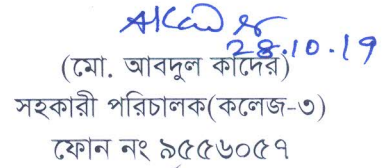 28.10.19
(মো. আবদুল কাদের)
সহকারী পরিচালক(কলেজ-৩)
ফোন নং ৯৫৫৬০৫৭